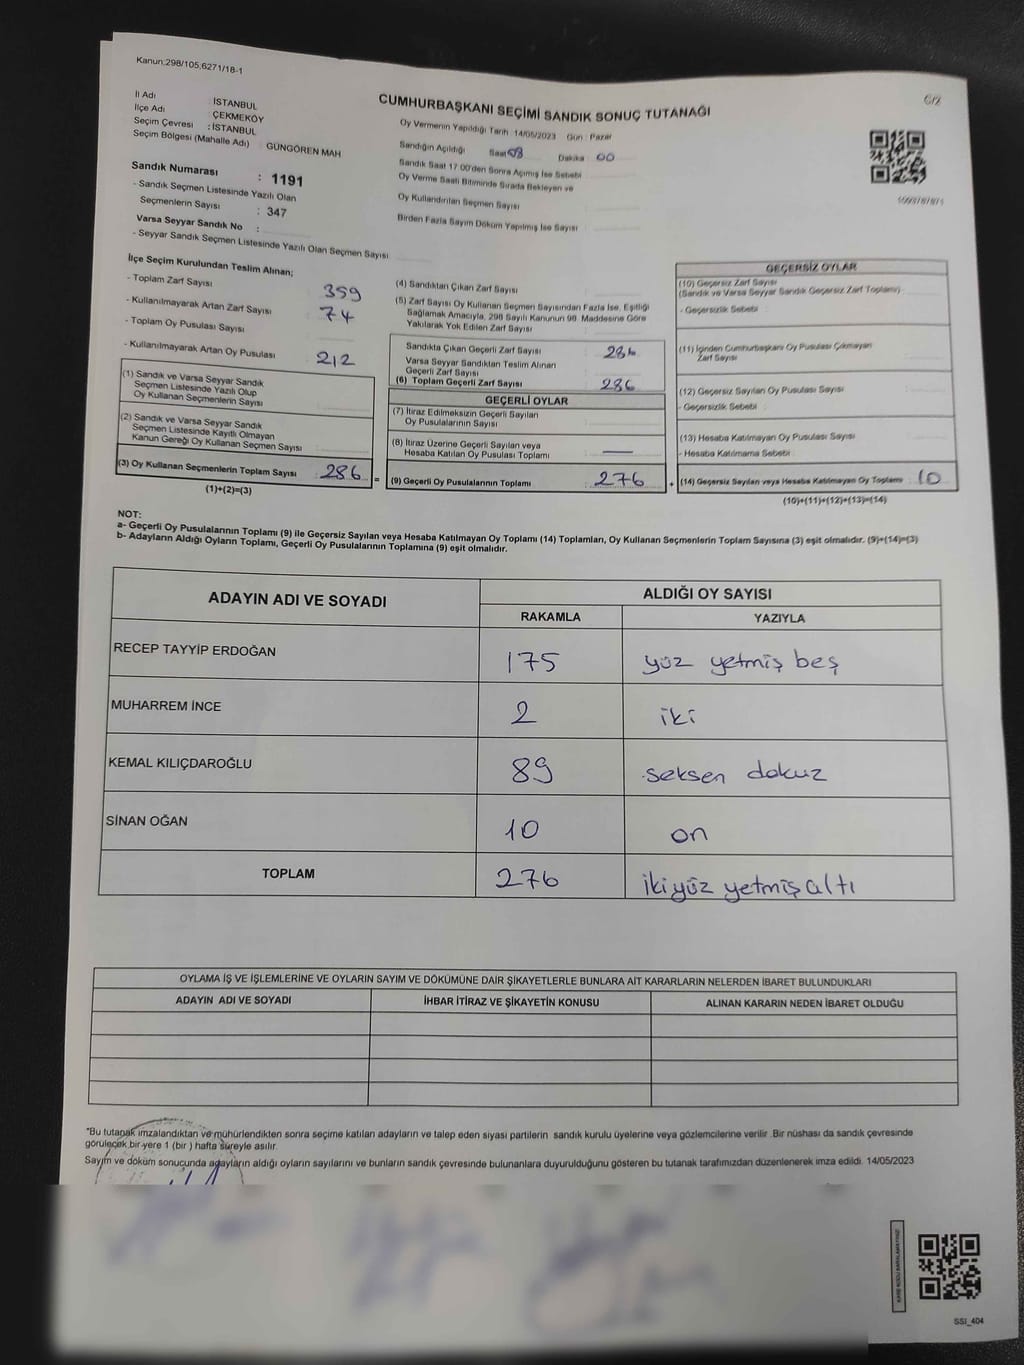 Kanun:298/105,6271/18-1
CUMHURBAŞKANI SEÇİMİ SANDIK SONUÇ TUTANAĞI
İl Adı : İSTANBUL
İlçe Adı : ÇEKMEKÖY
Seçim Çevresi : İSTANBUL
Seçim Bölgesi (Mahalle Adı) GÜNGÖREN MAH
Sandık Numarası : 1191
- Sandık Seçmen Listesinde Yazılı Olan
Seçmenlerin Sayısı : 347
Varsa Seyyar Sandık No :
- Seyyar Sandık Seçmen Listesinde Yazılı Olan Seçmen Sayısı
Oy Vermenin Yapıldığı Tarih :14/05/2023 Gün : Pazar
Sandığın Açıldığı Saat 08 Dakika 00
Sandık Saat 17:00'den Sonra Açımış İse Sebebi
Oy Verme Saati Bitiminde Sırada Bekleyen ve
Oy Kullandırılan Seçmen Sayısı
Birden Fazla Sayım Döküm Yapılmış İse Sayısı
İlçe Seçim Kurulundan Teslim Alınan;
- Toplam Zarf Sayısı 359
- Kullanılmayarak Artan Zarf Sayısı 74
- Toplam Oy Pusulası Sayısı
- Kullanılmayarak Artan Oy Pusulası 212
(1) Sandık ve Varsa Seyyar Sandık
Seçmen Listesinde Yazılı Olup
Oy Kullanan Seçmenlerin Sayısı
(2) Sandık ve Varsa Seyyar Sandık
Seçmen Listesinde Kayıtlı Olmayan
Kanun Gereği Oy Kullanan Seçmen Sayısı
(3) Oy Kullanan Seçmenlerin Toplam Sayısı 286
(1)+(2)=(3)
(4) Sandıktan Çıkan Zarf Sayısı
(5) Zarf Sayısı Oy Kullanan Seçmen Sayısından Fazla İse, Eşitliği
Sağlamak Amacıyla, 298 Sayılı Kanunun 98. Maddesine Göre
Yakılarak Yok Edilen Zarf Sayısı
Sandıkta Çıkan Geçerli Zarf Sayısı 286
Varsa Seyyar Sandıktan Teslim Alınan
Geçerli Zarf Sayısı
(6) Toplam Geçerli Zarf Sayısı 286
GEÇERLİ OYLAR
(7) İtiraz Edilmeksizin Geçerli Sayılan
Oy Pusulalarının Sayısı
(8) İtiraz Üzerine Geçerli Sayılan veya
Hesaba Katılan Oy Pusulası Toplamı —
= (9) Geçerli Oy Pusulalarının Toplamı 276
GEÇERSİZ OYLAR
(10) Geçersiz Zarf Sayısı
(Sandık ve Varsa Seyyar Sandık Geçersiz Zarf Toplamı)
- Geçersizlik Sebebi
(11) İçinden Cumhurbaşkanı Oy Pusulası Çıkmayan
Zarf Sayısı
(12) Geçersiz Sayılan Oy Pusulası Sayısı
- Geçersizlik Sebebi
(13) Hesaba Katılmayan Oy Pusulası Sayısı
- Hesaba Katılmama Sebebi
+ (14) Geçersiz Sayılan veya Hesaba Katılmayan Oy Toplamı 10
(10)+(11)+(12)+(13)=(14)
NOT:
a- Geçerli Oy Pusulalarının Toplamı (9) ile Geçersiz Sayılan veya Hesaba Katılmayan Oy Toplamı (14) Toplamları, Oy Kullanan Seçmenlerin Toplam Sayısına (3) eşit olmalıdır. (9)+(14)=(3)
b- Adayların Aldığı Oyların Toplamı, Geçerli Oy Pusulalarının Toplamına (9) eşit olmalıdır.
ADAYIN ADI VE SOYADI ALDIĞI OY SAYISI
RAKAMLA YAZIYLA
RECEP TAYYİP ERDOĞAN 175 yüz yetmiş beş
MUHARREM İNCE 2 iki
KEMAL KILIÇDAROĞLU 89 seksen dokuz
SİNAN OĞAN 10 on
TOPLAM 276 ikiyüz yetmiş altı
OYLAMA İŞ VE İŞLEMLERİNE VE OYLARIN SAYIM VE DÖKÜMÜNE DAİR ŞİKAYETLERLE BUNLARA AİT KARARLARIN NELERDEN İBARET BULUNDUKLARI
ADAYIN ADI VE SOYADI İHBAR İTİRAZ VE ŞİKAYETİN KONUSU ALINAN KARARIN NEDEN İBARET OLDUĞU
"Bu tutanak imzalandıktan ve mühürlendikten sonra seçime katılan adayların ve talep eden siyasi partilerin sandık kurulu üyelerine veya gözlemcilerine verilir .Bir nüshası da sandık çevresinde
görülecek bir yere 1 (bir ) hafta süreyle asılır.
Sayım ve döküm sonucunda adayların aldığı oyların sayılarını ve bunların sandık çevresinde bulunanlara duyurulduğunu gösteren bu tutanak tarafımızdan düzenlenerek imza edildi. 14/05/2023
SSI_404